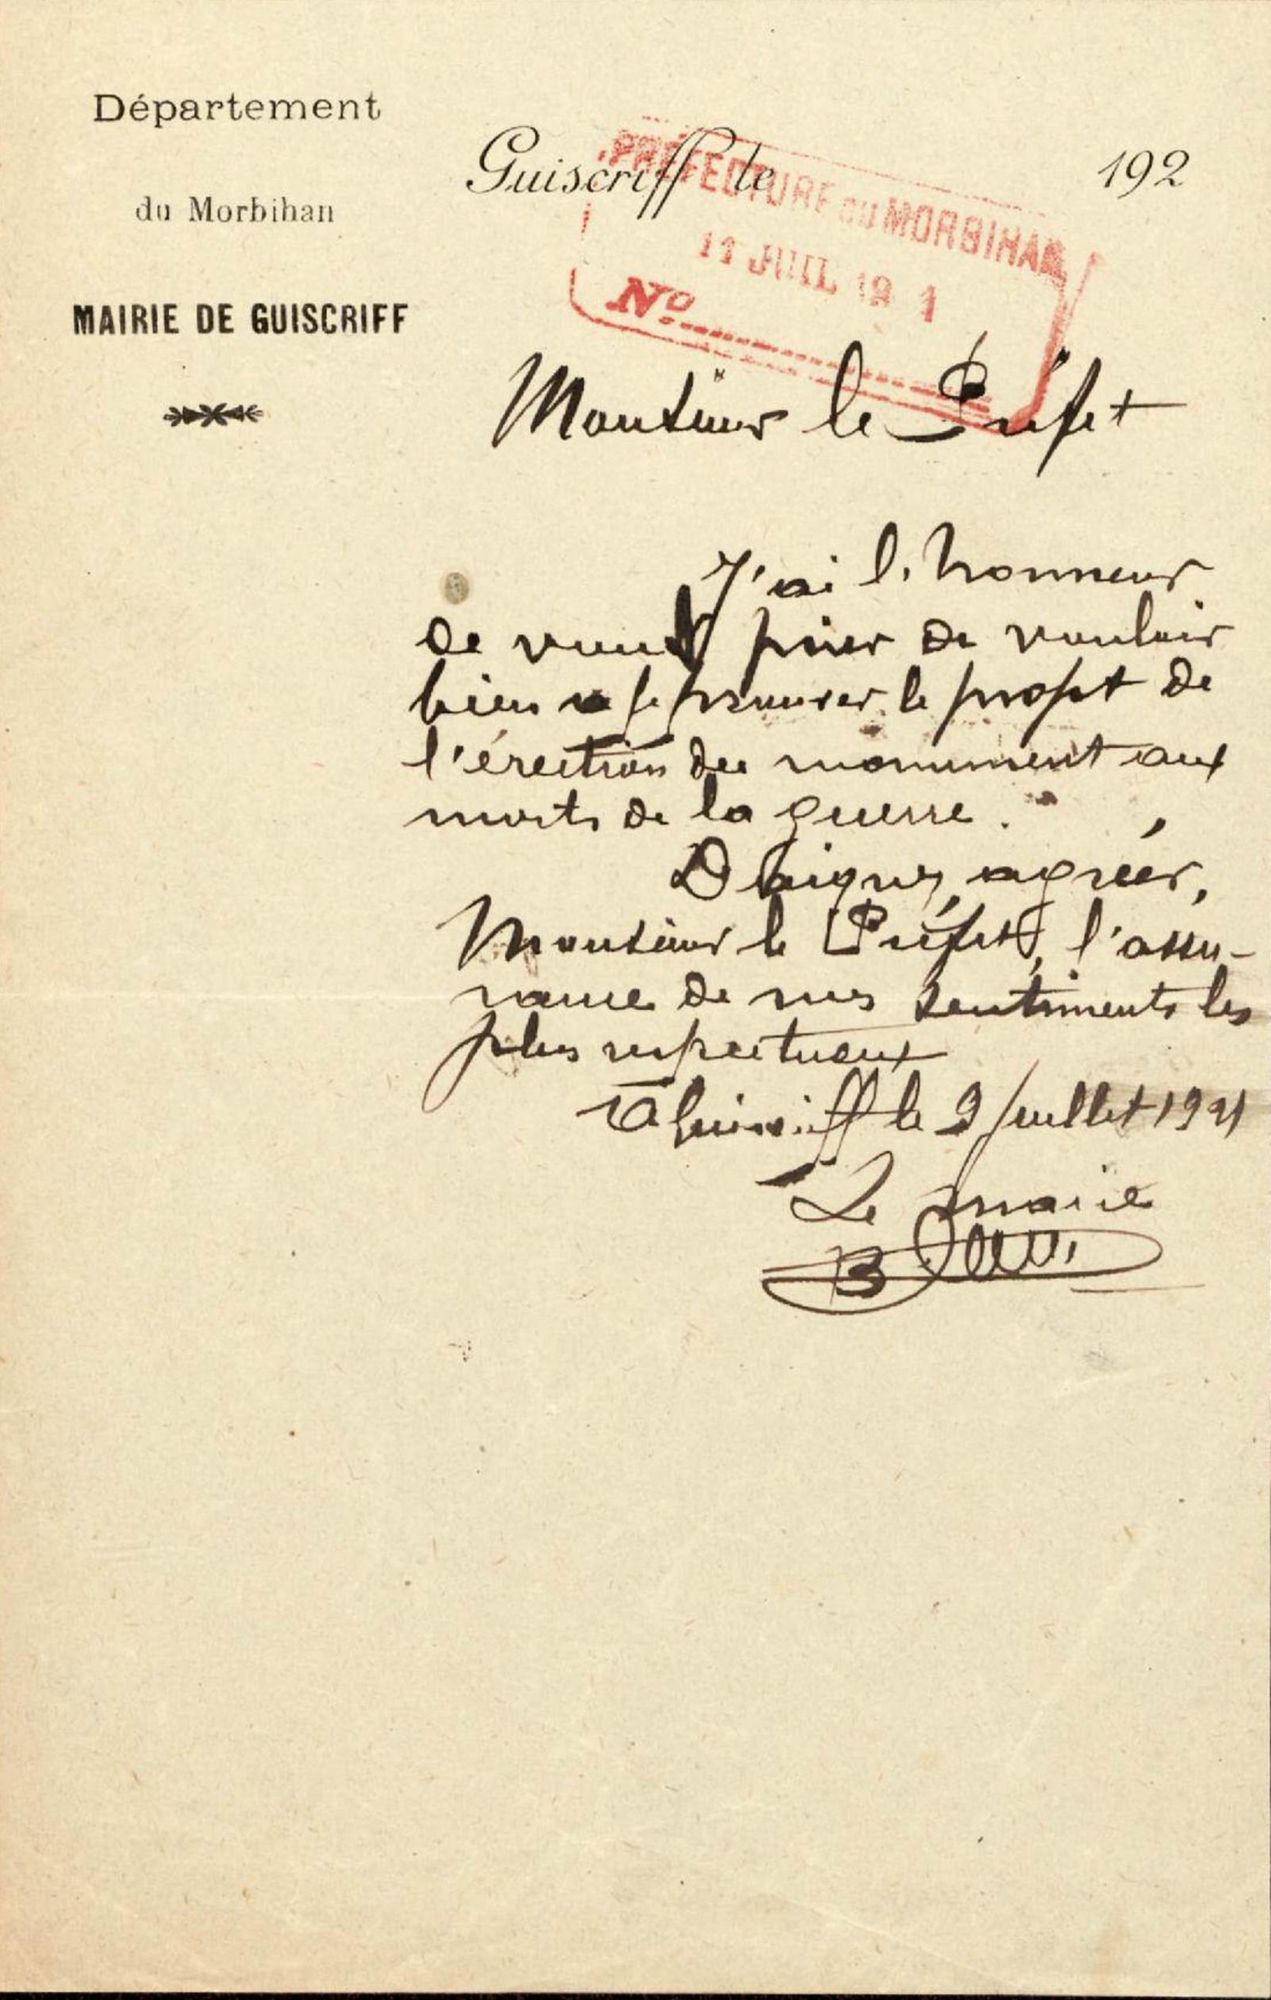 Département
du Morbihan
MAIRIE DE GUISCRIFF
Guiscriff le 192
PRÉFECTURE DU MORBIHAN
11 JUIL 19 1
No
Monsieur le Préfet
J'ai l'honneur
de vous prier de vouloir
bien approuver le projet de
l'érection du monument aux
morts de la guerre.
Daignez agréer,
Monsieur le Préfet, l'assu-
rance de mes sentiments les
plus respectueux
Guiscriff le 9 Juillet 1921
Le maire